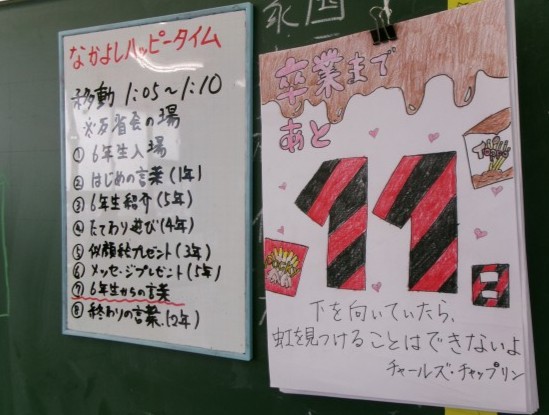 なかよしハッピータイム
移動 1:05〜1:10
① 6年生入場
② はじめの言葉(1年)
③ 6年生紹介(5年)
④ たてわり遊び(4年)
⑤ 似顔絵プレゼント(3年)
⑥ メッセージプレゼント(5年)
⑦ 6年生からの言葉
⑧ 終わりの言葉(2年)
卒業まで
あと
11日
下を向いていたら、
虹を見つけることはできないよ
チャールズ・チャップリン